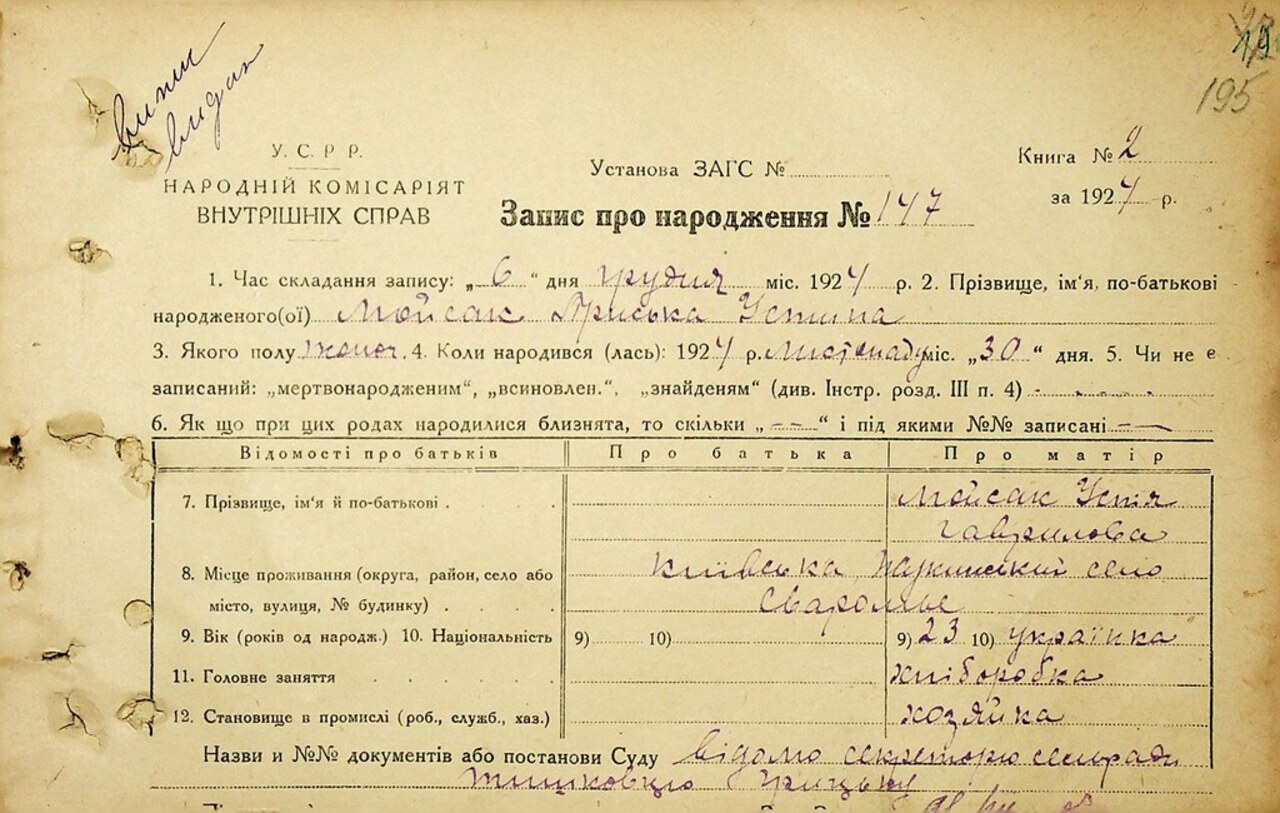 випис
видан
195
У. С. Р. Р.
НАРОДНІЙ КОМІСАРІЯТ
ВНУТРІШНІХ СПРАВ
Установа ЗАГС №
Книга № 2
за 1924 р.
Запис про народження № 147
1. Час складання запису: „ 6 “ дня грудня міс. 1924 р. 2. Прізвище, ім'я, по-батькові
народженого(ої) Мойсак Приська Устина
3. Якого полу жоноч. 4. Коли народився (лась): 1924 р. листопаду міс. „ 30 “ дня. 5. Чи не є
записаний: „мертвонародженим“, „всиновлен.“, „знайденям“ (див. Інстр. розд. III п. 4) -
6. Як що при цих родах народилися близнята, то скільки „ — — “ і під якими №№ записані — —
Відомості про батьків Про батька Про матір
7. Прізвище, ім'я й по-батькові Мойсак Устя
Гаврилова
8. Місце проживання (округа, район, село або Київська, село
місто, вулиця, № будинку) Сваромье
9. Вік (років од народж.) 10. Національність 9) 10) 9) 23 10) українка
11. Головне заняття хліборобка
12. Становище в промислі (роб., служб., хаз.) хозяйка
Назви и №№ документів або постанови Суду відомо секреторю сельради